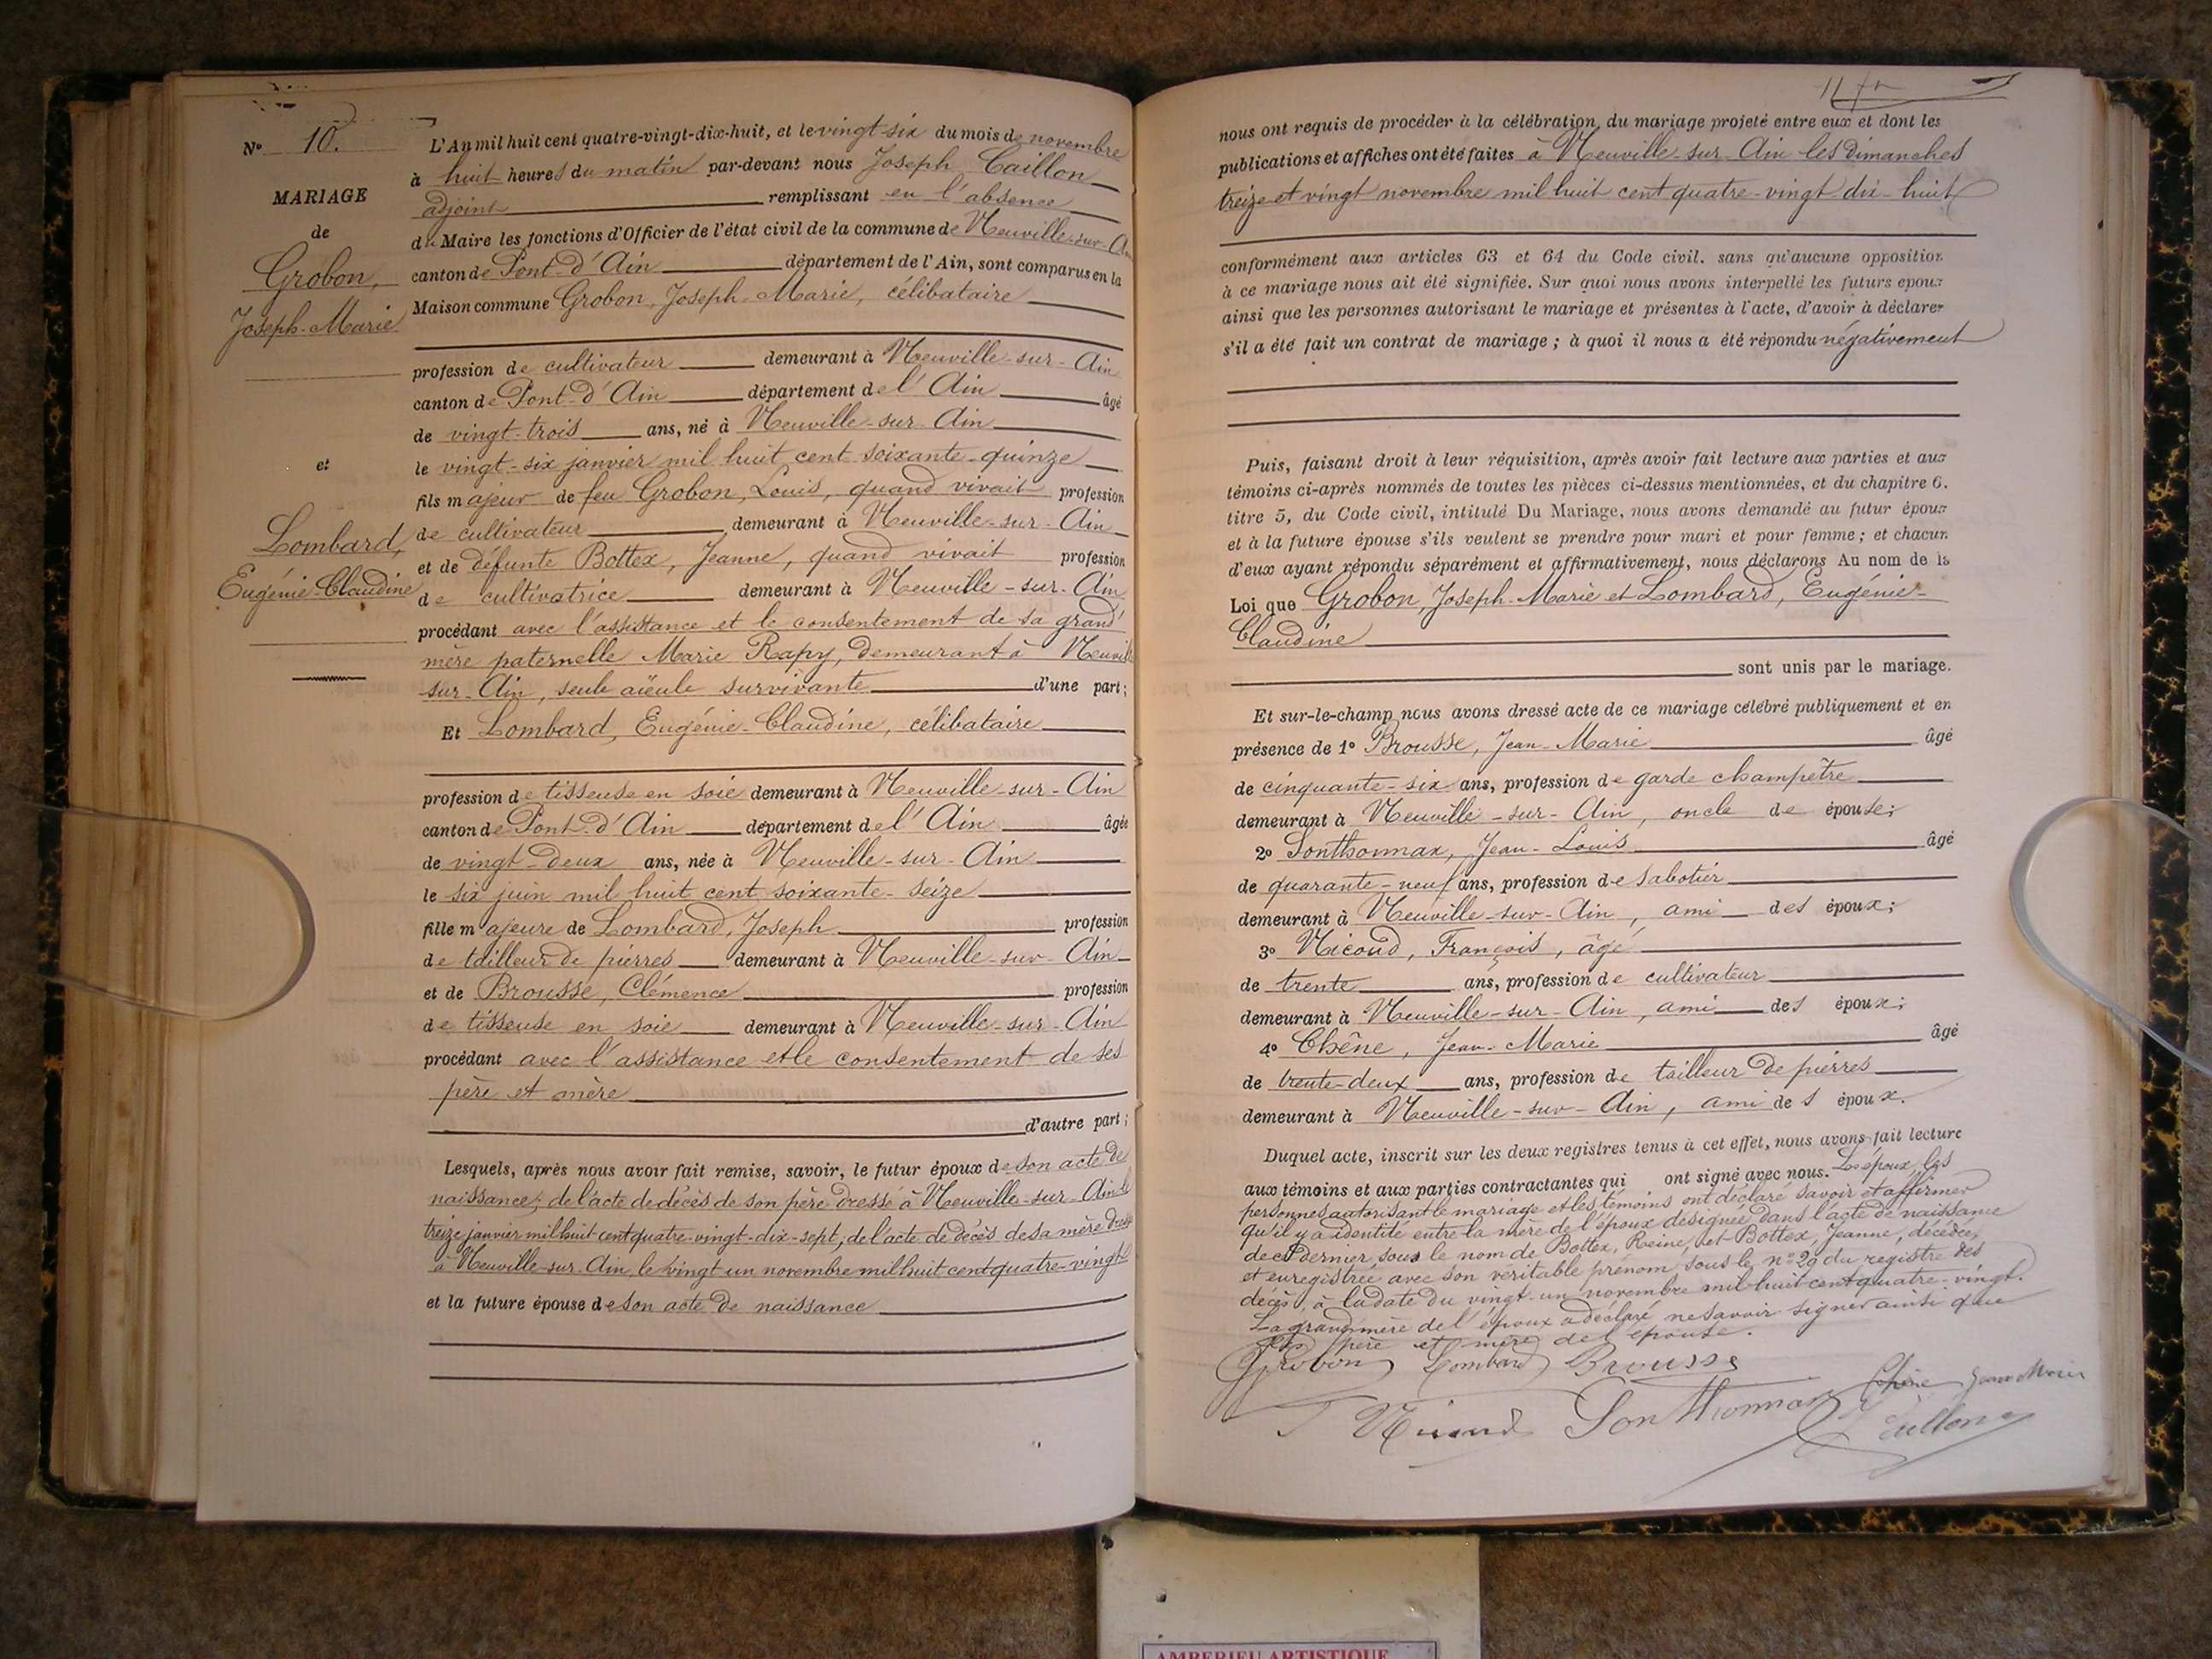 N° 10.
MARIAGE
de
Grobon,
Joseph-Marie
et
Lombard,
Eugénie-Claudine
L'An mil huit cent quatre-vingt-dix-huit, et le vingt-six du mois de novembre
à huit heures du matin par-devant nous Joseph Caillon
adjoint remplissant en l'absence
du Maire les fonctions d'Officier de l'état civil de la commune de Neuville-sur-Ain
canton de Pont-d'Ain département de l'Ain, sont comparus en la
Maison commune Grobon, Joseph-Marie, célibataire
profession de cultivateur demeurant à Neuville-sur-Ain
canton de Pont-d'Ain département de l'Ain âgé
de vingt-trois ans, né à Neuville-sur-Ain
le vingt-six janvier mil huit cent soixante-quinze
fils majeur de feu Grobon, Louis, quand vivait profession
de cultivateur demeurant à Neuville-sur-Ain
et de défunte Bottex, Jeanne, quand vivait profession
de cultivatrice demeurant à Neuville-sur-Ain
procédant avec l'assistance et le consentement de sa grand'
mère paternelle Marie Rapy, demeurant à Neuville
sur-Ain, seule aïeule survivante d'une part;
Et Lombard, Eugénie-Claudine, célibataire
profession de tisseuse en soie demeurant à Neuville-sur-Ain
canton de Pont-d'Ain département de l'Ain âgée
de vingt-deux ans, née à Neuville-sur-Ain
le six juin mil huit cent soixante-seize
fille majeure de Lombard, Joseph profession
de tailleur de pierres demeurant à Neuville-sur-Ain
et de Brousse, Clémence profession
de tisseuse en soie demeurant à Neuville-sur-Ain
procédant avec l'assistance et le consentement de ses
père et mère
d'autre part;
Lesquels, après nous avoir fait remise, savoir, le futur époux de son acte de
naissance; de l'acte de décès de son père dressé à Neuville-sur-Ain le
treize janvier mil huit cent quatre-vingt-dix-sept, de l'acte de décès de sa mère dressé
à Neuville-sur-Ain, le vingt un novembre mil huit cent quatre-vingt
et la future épouse de son acte de naissance
nous ont requis de procéder à la célébration du mariage projeté entre eux et dont les
publications et affiches ont été faites à Neuville-sur-Ain les dimanches
treize et vingt novembre mil huit cent quatre-vingt dix-huit
conformément aux articles 63 et 64 du Code civil. sans qu'aucune opposition
à ce mariage nous ait été signifiée. Sur quoi nous avons interpellé les futurs époux
ainsi que les personnes autorisant le mariage et présentes à l'acte, d'avoir à déclarer
s'il a été fait un contrat de mariage; à quoi il nous a été répondu négativement
Puis, faisant droit à leur réquisition, après avoir fait lecture aux parties et aux
témoins ci-après nommés de toutes les pièces ci-dessus mentionnées, et du chapitre 6.
titre 5, du Code civil, intitulé Du Mariage, nous avons demandé au futur époux
et à la future épouse s'ils veulent se prendre pour mari et pour femme; et chacun
d'eux ayant répondu séparément et affirmativement, nous déclarons Au nom de la
Loi que Grobon, Joseph-Marie et Lombard, Eugénie-
Claudine
sont unis par le mariage.
Et sur-le-champ nous avons dressé acte de ce mariage célébré publiquement et en
présence de 1° Brousse, Jean-Marie âgé
de cinquante-six ans, profession de garde champêtre
demeurant à Neuville-sur-Ain, oncle de épouse;
2° Sonthonnax, Jean-Louis âgé
de quarante-neuf ans, profession de sabotier
demeurant à Neuville-sur-Ain, ami des époux;
3° Nicoud, François, âgé
de trente ans, profession de cultivateur
demeurant à Neuville-sur-Ain, ami des époux;
4° Chêne, Jean-Marie âgé
de trente-deux ans, profession de tailleur de pierres
demeurant à Neuville-sur-Ain, ami des époux.
Duquel acte, inscrit sur les deux registres tenus à cet effet, nous avons fait lecture
aux témoins et aux parties contractantes qui ont signé avec nous. Les époux, les
personnes autorisant le mariage et les témoins ont déclaré savoir et affirmer
qu'il y a identité entre la mère de l'époux désignée dans l'acte de naissance
de ce dernier sous le nom de Bottex, Reine, et Bottex, Jeanne, décédée,
et enregistrée avec son véritable prénom sous le n° 29 du registre des
décès, à la date du vingt-un novembre mil huit cent quatre-vingt.
La grand'mère de l'époux a déclaré ne savoir signer ainsi que
les père et mère de l'épouse.
Grobon Lombard Brousse
Nicoud Sonthonnax Chêne Jean Marie
Caillon
AMBERIEU ARTISTIQUE